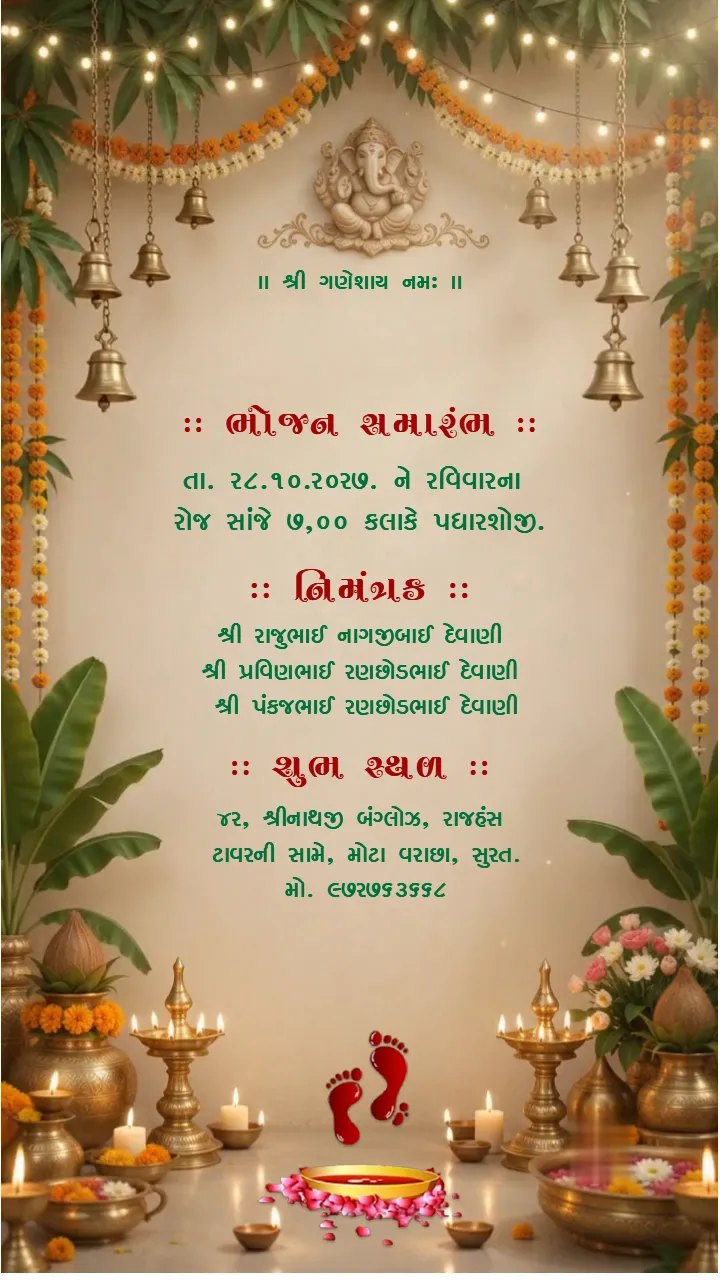 ॥ શ્રી ગણેશાય નમઃ ॥
:: ભોજન સમારંભ ::
તા. ૨૮.૧૦.૨૦૨૭. ને રવિવારના
રોજ સાંજે ૭,૦૦ કલાકે પધારશોજી.
:: નિમંત્રક ::
શ્રી રાજુભાઈ નાગજીબાઈ દેવાણી
શ્રી પ્રવિણભાઈ રણછોડભાઈ દેવાણી
શ્રી પંકજભાઈ રણછોડભાઈ દેવાણી
:: શુભ સ્થળ ::
૪૨, શ્રીનાથજી બંગ્લોઝ, રાજહંસ
ટાવરની સામે, મોટા વરાછા, સુરત.
મો. ૯૭૨૭૬૩૬૬૮